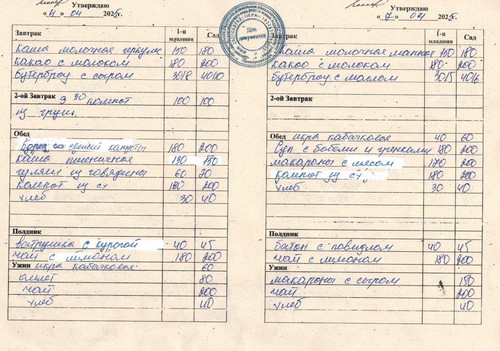 Утверждаю
«4» 04 2025г.
Завтрак 1-я младшая Сад
каша молочная геркулес 150 180
какао с молоком 180 200
бутерброд с сыром 30/8 40/10
2-ой Завтрак 9 30 компот 100 100
из груши
Обед
Борщ со свежей капусты 180 200
каша пшеничная 130 150
гуляш из говядины 60 70
компот из с 180 200
хлеб 30 40
Полдник
Ватрушка с 40 45
чай с лимоном 180 200
Ужин икра кабачковая 60
омлет 80
чай 200
хлеб 40
Утверждаю
«7» 04 2025г.
Завтрак 1-я младшая Сад
каша молочная манная 150 180
какао с молоком 180 200
бутерброд с маслом 30/5 40/6
2-ой Завтрак
Обед икра кабачковая 40 60
Суп с бобами и гренками 180 200
макароны с мясом 170 200
компот из с 180 200
хлеб 30 40
Полдник
батон с повидлом 40 45
чай с лимоном 180 200
Ужин
макароны с сыром 150
чай 200
хлеб 40